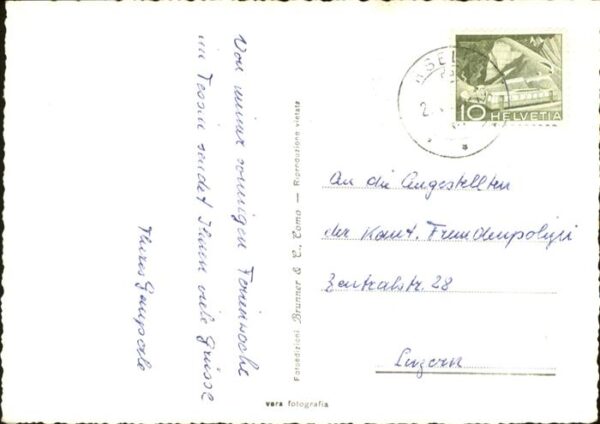 Von meiner sonnigen Ferienwoche
im Tessin sendet Ihnen viele Grüsse
10 HELVETIA
An die Angestellten
der Kant. Fremdenpolizei
Zentralstr. 28
Luzern
Fotoedizioni Brunner & C., Como — Riproduzione vietata
vera fotografia